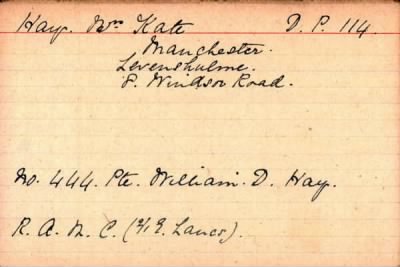 Hay. Mrs Kate D. P. 114.
Manchester.
Levenshulme.
8. Windsor Road.
No. 444. Pte. William. D. Hay.
R. A. M. C. (2/1 E. Lancs).